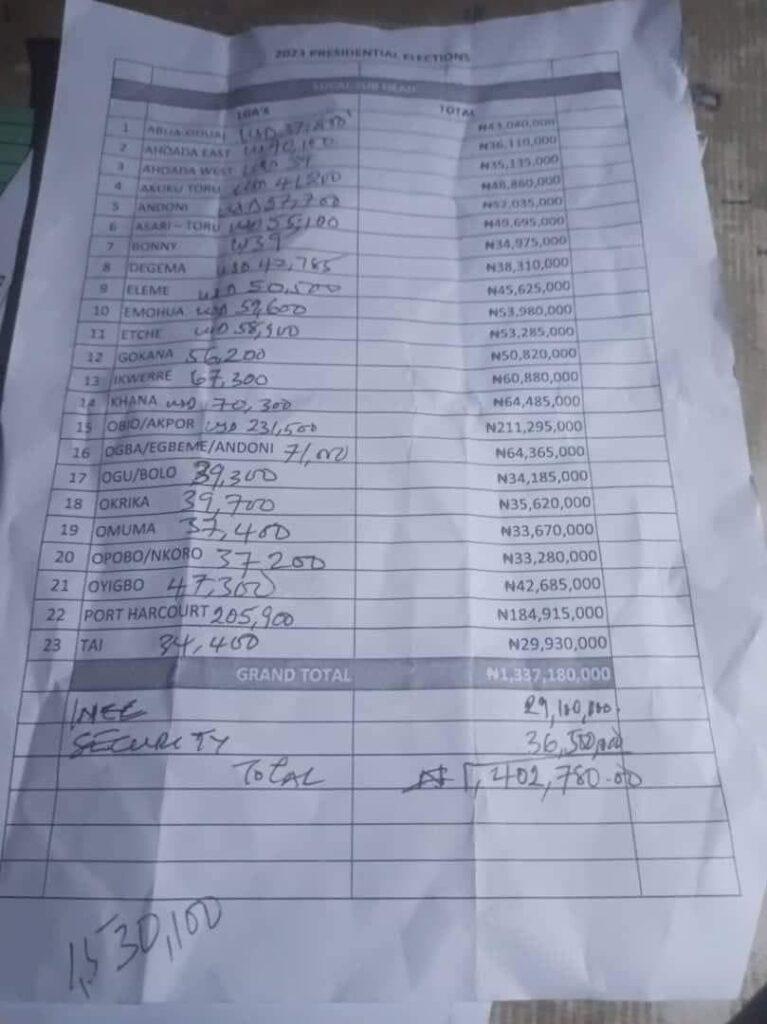 2023 PRESIDENTIAL ELECTIONS
LGA'S TOTAL
1 ABUA-ODUAL USD 37,400 ₦43,040,000
2 AHOADA EAST ₦36,110,000
3 AHOADA WEST ₦35,135,000
4 AKUKU TORU USD 41,200 ₦48,860,000
5 ANDONI USD 57,700 ₦52,035,000
6 ASARI – TORU USD 55,100 ₦49,695,000
7 BONNY 39 ₦34,975,000
8 DEGEMA USD 42,785 ₦38,310,000
9 ELEME USD 50,500 ₦45,625,000
10 EMOHUA USD 59,600 ₦53,980,000
11 ETCHE USD 58,900 ₦53,285,000
12 GOKANA 56,200 ₦50,820,000
13 IKWERRE 67,300 ₦60,880,000
14 KHANA USD 70,300 ₦64,485,000
15 OBIO/AKPOR USD 231,500 ₦211,295,000
16 OGBA/EGBEME/ANDONI 71,000 ₦64,365,000
17 OGU/BOLO 39,300 ₦34,185,000
18 OKRIKA 39,700 ₦35,620,000
19 OMUMA 37,400 ₦33,670,000
20 OPOBO/NKORO 37,200 ₦33,280,000
21 OYIGBO 47,300 ₦42,685,000
22 PORT HARCOURT 205,900 ₦184,915,000
23 TAI 34,400 ₦29,930,000
GRAND TOTAL ₦1,337,180,000
INEC 29,100,000
SECURITY 36,500,000
TOTAL ₦ 1,402,780.00
1,530,100